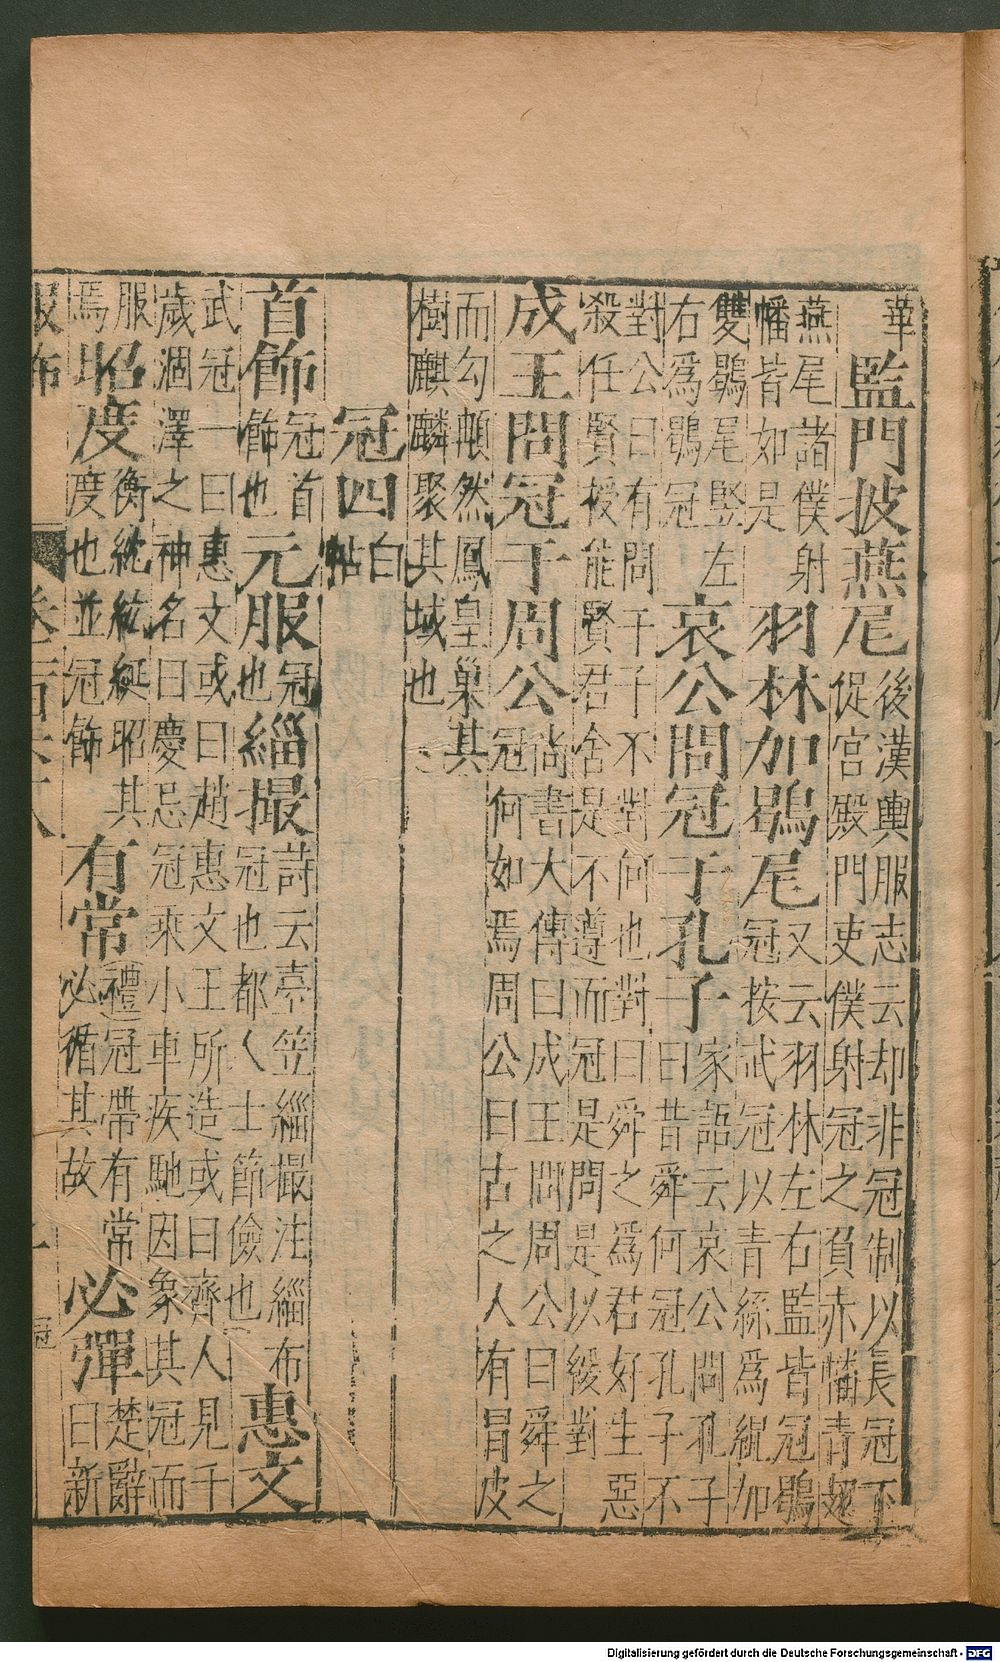 華監門披燕尾後漢輿服志云却非冠制以長冠下
促宮殿門吏僕射冠之負赤幡青翅
燕尾諸僕射
幡皆如是羽林加鶡尾又云羽林左右監皆冠鶡
冠按武冠以青絲爲緄加
雙鶡尾竪左
右爲鶡冠哀公問冠于孔子家語云哀公問孔子
曰昔舜何冠孔子不
對公曰有問于子不對何也對曰舜之爲君好生惡
殺任賢授能賢君舍是不遵而冠是問是以緩對
成王問冠于周公尚書大傳曰成王問周公曰舜之
冠何如焉周公曰古之人有冒皮
而勾頓然鳳皇巢其
樹麒麟聚其域也
冠四白帖
首飾冠首飾也元服冠也緇撮詩云臺笠緇撮注緇布冠也都人士節儉也惠文
武冠一曰惠文或曰趙惠文王所造或曰齊人見千
歲涸澤之神名曰慶忌冠乘小車疾馳因象其冠而
服焉昭度服衡紞紘綖昭其度也並冠飾有常禮冠帶有常必循其故必彈楚辭曰新
服飾
冠
Digitalisierung gefördert durch die Deutsche Forschungsgemeinschaft - DFG